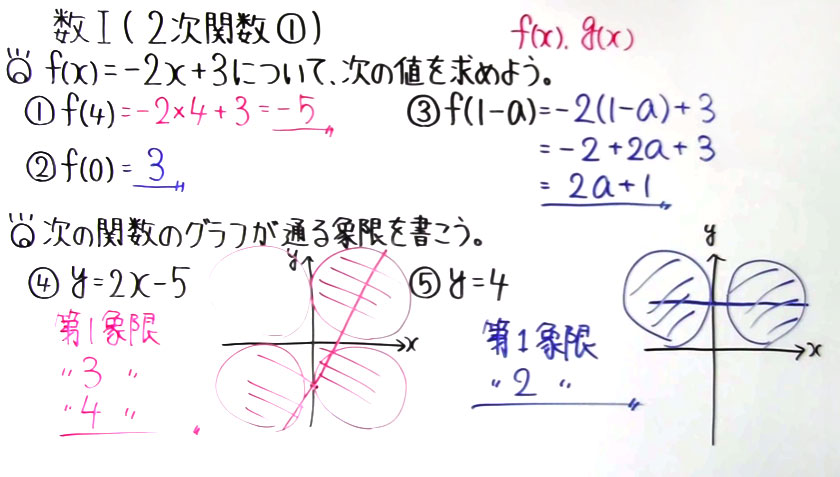 数Ⅰ(2次関数①)
f(x), g(x)
f(x)=-2x+3について、次の値を求めよう。
①f(4)=-2×4+3=-5
②f(0)=3
③f(1-a)=-2(1-a)+3
=-2+2a+3
=2a+1
次の関数のグラフが通る象限を書こう。
④y=2x-5
第1象限
〃3〃
〃4〃
y
x
⑤y=4
第1象限
〃2〃
y
x